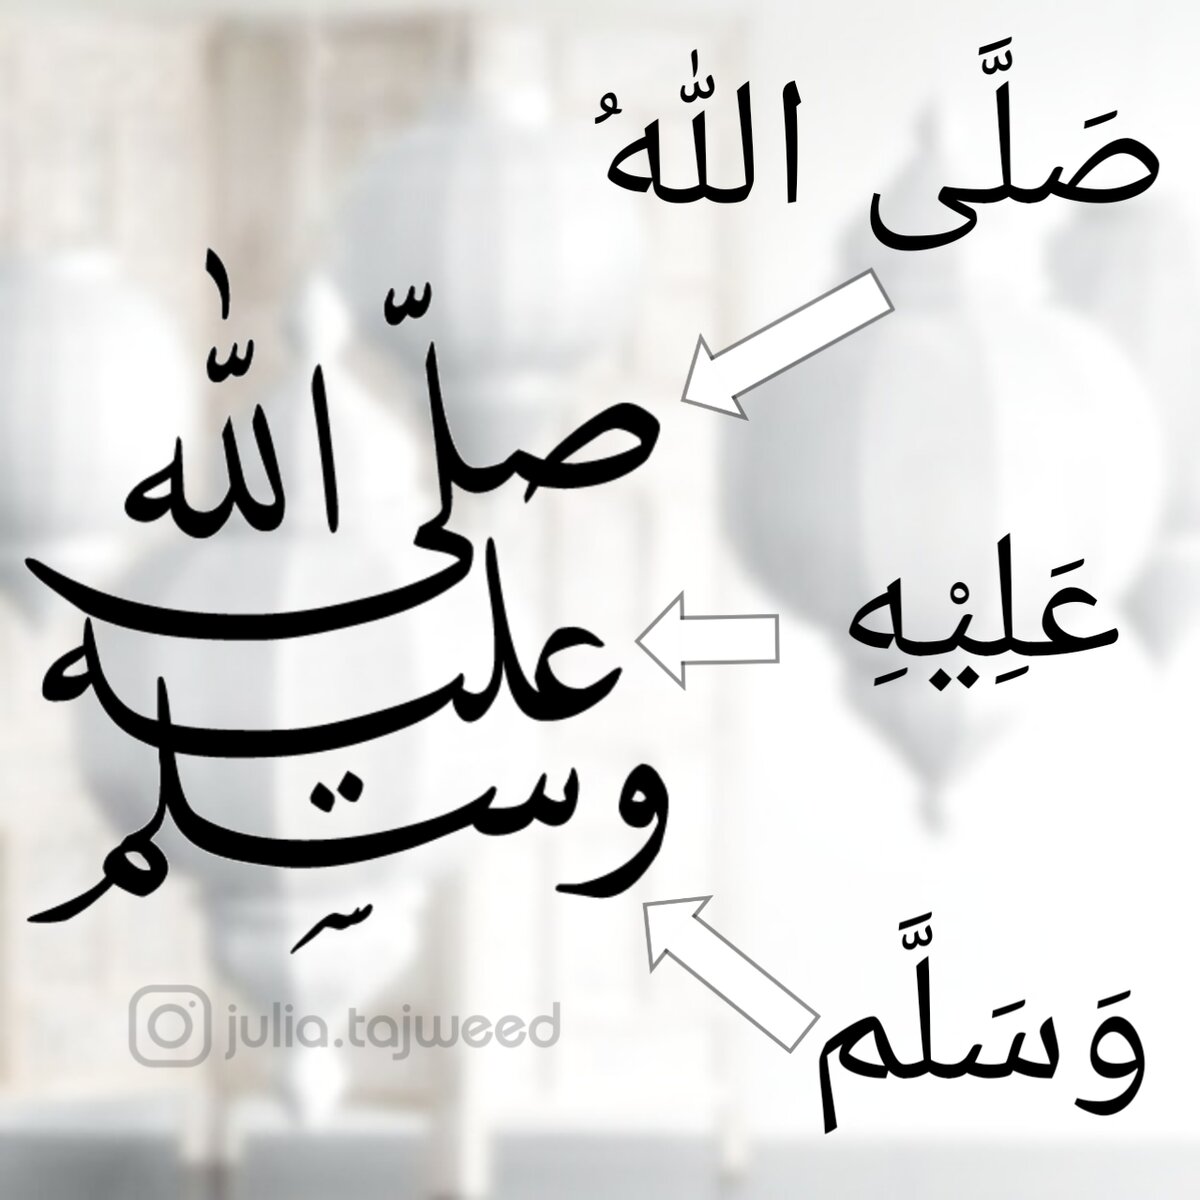 صَلَّى اللّٰهُ
صلّى اللّٰه
عَلِيْهِ
عليه
وسلم
وَسَلَّم
julia.tajweed